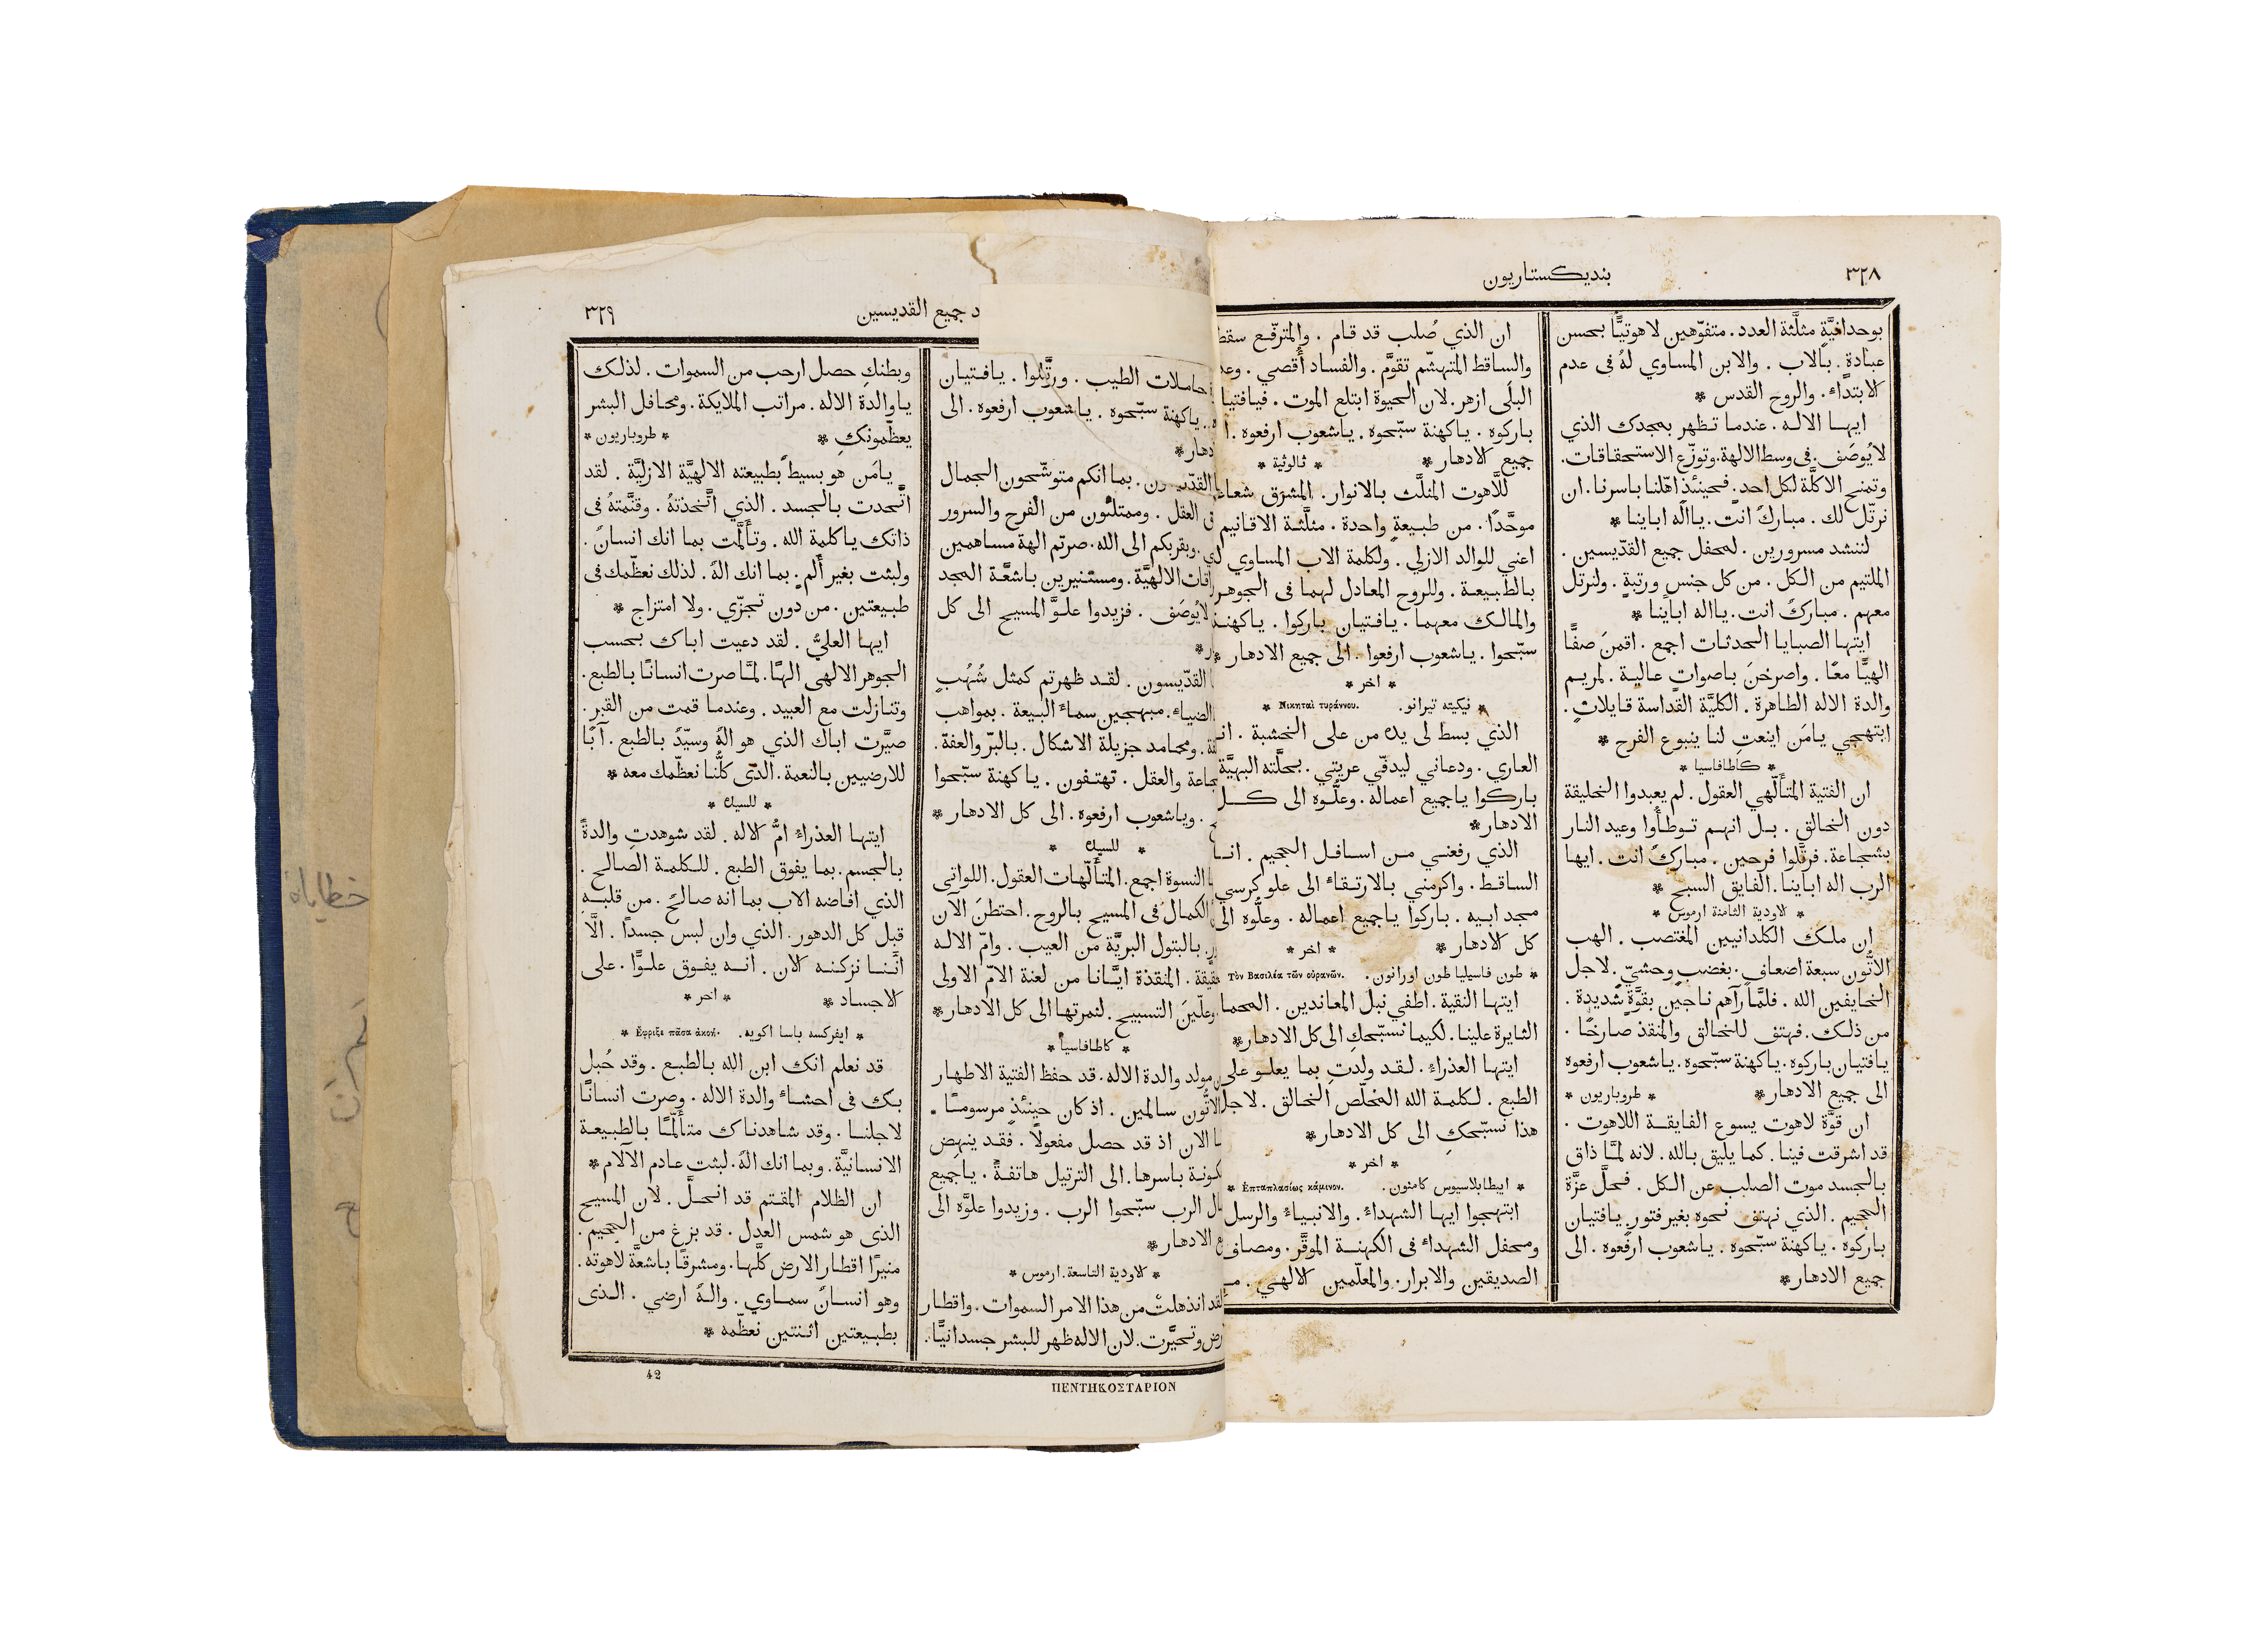 ٣٢٨
بنديكستاريون
بوحدانيَّةٍ مثلَّثة العدد. متفوّهين لاهوتيًّا بحسن
عبادةٍ. بالاب . والابن المساوي لهُ فى عدم
الابتداء. والروح القدس *
ايها الاله . عندما تظهر بمجدك الذي
لا يُوصَف. فى وسط الالهة. وتوزّع الاستحقاقات.
وتمنح الاكلَّة لكل احد. فحينئذٍ اهّلنا باسرنا. ان
نرتّل لك . مباركٌ انت. يااله اباينا *
لننشد مسرورين . لمحفل جميع القدّيسين .
الملتيم من الكل . من كل جنسٍ ورتبةٍ . ولنرتل
معهم . مباركٌ انت. يااله اباينا *
ايتها الصبايا الحدثات اجمع . اقمنَ صفًّا
الهيًّا معًا . واصرخنَ باصواتٍ عالية . لمريم
والدة الاله الطاهرة . الكليَّة القداسة قايلاتٍ .
ابتهجي يامَن اينعتِ لنا ينبوع الفرح *
* كاطافاسيا *
ان الفتية المتألّهي العقول . لم يعبدوا الخليقة
دون الخالق . بل انهم توطأوا وعيد النار
بشجاعة . فرتَّلوا فرحين . مباركٌ انت . ايها
الرب اله اباينا . الفايق السبح *
* الاودية الثامنة ارموس *
ان ملك الكلدانيين المغتصب . الهب
الاتُّون سبعة اضعاف . بغضبٍ وحشيٍّ . لاجل
الخايفين الله . فلمَّا رآهم ناجين بقوَّةٍ شديدة .
من ذلك . فهتف للخالق والمنقذ صارخًا .
يافتيان باركوه . ياكهنة سبّحوه . ياشعوب ارفعوه
الى جميع الادهار *    * طروباريون *
ان قوَّة لاهوت يسوع الفايقة اللاهوت .
قد اشرقت فينا . كما يليق بالله . لانه لمَّا ذاق
بالجسد موت الصلب عن الكل . فحلَّ عزَّة
الجحيم . الذي نهتف نحوه بغير فتورٍ . يافتيان
باركوه . ياكهنة سبّحوه . ياشعوب ارفعوه . الى
جميع الادهار *
ان الذي صُلب قد قام . والمترفّع سقط
والساقط المتهشّم تقوَّم . والفساد أُقصي .
البلَى ازهر . لان الحيوة ابتلع الموت .
باركوه . ياكهنة سبّحوه . ياشعوب ارفعوه .
جميع الادهار *    * ثالوثية *
للَّاهوت المثلَّث بالانوار . المشرَق
موحَّدًا . من طبيعةٍ واحدة . مثلَّثة الاقانيم
اعني للوالد الازلي . ولكلمة الاب المساوي
بالطبيعة . وللروح المعادل لهما فى الجوهر
والمالك معهما . يافتيان باركوا .
سبّحوا . ياشعوب ارفعوا . الى جميع الادهار *
* اخر *
* نيكيته تيرانو. Νικηταὶ τυράννου. *
الذي بسط لي يدك من على الخشبة .
العاري . ودعاني ليدفّي عريتي . بحلَّته البهيَّة
باركوا ياجميع اعماله . وعلُّوه الى كل
الادهار *
الذي رفعني من اسافل الجحيم .
الساقط . واكرمني بالارتقاء الى علو كرسي
مجد ابيه . باركوا ياجميع اعماله . وعلُّوه الى
كل الادهار *    * اخر *
* طون فاسيليا طون اورانون. Τὸν Βασιλέα τῶν οὐρανῶν.
ايتها النقية . اطفي نبل المعاندين .
الثايرة علينا . لكيما نسبّحكِ الى كل الادهار *
ايتها العذراء . لقد ولدتِ بما يعلو على
الطبع . لكلمة الله المخلّص الخالق .
هذا نسبّحكِ الى كل الادهار *
* اخر *
* ايبطابلاسيوس كامنون. Ἑπταπλασίως κάμινον. *
ابتهجوا ايها الشهداء . والانبياء والرسل
ومحفل الشهداء فى الكهنة الموقَّر .
الصديقين والابرار . والمعلّمين الالهي .
جميع القديسين
٣٢٩
حاملات الطيب . ورتَّلوا . يافتيان
ياكهنة سبّحوه . ياشعوب ارفعوه . الى
بما انكم متوشّحون الجمال
العقل . وممتلئون من الفرح والسرور
وبقربكم الى الله . صرتم الهة مساهمين
الالهيَّة . ومستنيرين باشعَّة المجد
لايُوصَف . فزيدوا علوَّ المسيح الى كل
القدّيسون . لقد ظهرتم كمثل شُهُبٍ
الضياء . مبهجين سماء البيعة . بمواهب
ومحامد جزيلة الاشكال . بالبرّ والعفة .
والعقل . تهتفون . ياكهنة سبّحوا
. وياشعوب ارفعوه . الى كل الادهار *
* للسيدة *
النسوة اجمع . المتألّهات العقول . اللواتى
الكمال فى المسيح بالروح . احتطنَ الان
بالبتول البريَّة من العيب . وامّ الاله
المنقذة ايَّانا من لعنة الامّ الاولى
وعلّينَ التسبيح . لثمرتها الى كل الادهار *
* كاطافاسيا *
مولد والدة الاله . قد حفظ الفتية الاطهار
الاتُّون سالمين . اذ كان حينئذٍ مرسومًا .
الان اذ قد حصل مفعولًا . فقد ينهض
باسرها . الى الترتيل هاتفةً . ياجميع
الرب سبّحوا الرب . وزيدوا علوَّه الى
الادهار *
* الاودية التاسعة . ارموس *
لقد انذهلتْ من هذا الامر السموات . واقطار
وتحيَّرت . لان الاله ظهر للبشر جسدانيًّا .
وبطنكِ حصل ارحب من السموات . لذلك
ياوالدة الاله . مراتب الملايكة . ومحافل البشر
يعظّمونكِ *    * طروباريون *
يامَن هو بسيطٌ بطبيعته الالهيَّة الازليَّة . لقد
اتَّحدت بالجسد . الذي اتَّخذتهُ . وقنَّمتهُ فى
ذاتك ياكلمة الله . وتألَّمت بما انك انسانٌ .
ولبثت بغير أَلمٍ . بما انك الهٌ . لذلك نعظّمك فى
طبيعتين . من دون تجزّي . ولا امتزاج *
ايها العليُّ . لقد دعيت اباك بحسب
الجوهر الالهى الهًا . لمَّا صرت انسانًا بالطبع .
وتنازلت مع العبيد . وعندما قمت من القبر .
صيَّرت اباك الذي هو الهٌ وسيّدٌ بالطبع . آبًا
للارضيين بالنعمة . الذى كلُّنا نعظّمك معه *
* للسيدة *
ايتها العذراء امُّ الاله . لقد شوهدتِ والدةً
بالجسم . بما يفوق الطبع . للكلمة الصالح .
الذي افاضه الاب بما انه صالحٌ . من قلبهِ
قبل كل الدهور . الذي وان لبس جسداً . الَّا
انَّنا نزكنه الان . انه يفوق علوًّا . على
الاجساد *    * اخر *
* ايفركسه باسا اكويه. Ἔφριξε πᾶσα ἀκοή. *
قد نعلم انك ابن الله بالطبع . وقد حُبل
بك فى احشاء والدة الاله . وصرت انسانًا
لاجلنا . وقد شاهدناك متألّمًا بالطبيعة
الانسانيَّة . وبما انك الهٌ . لبثت عادم الآلام *
ان الظلام المقتم قد انحلَّ . لان المسيح
الذى هو شمس العدل . قد بزغ من الجحيم .
منيرًا اقطار الارض كلَّها . ومشرقًا باشعَّة لاهوته .
وهو انسانٌ سماوي . والهٌ ارضي . الذى
بطبيعتين اثنتين نعظّمه *
42
ΠΕΝΤΗΚΟΣΤΑΡΙΟΝ
خطاياة